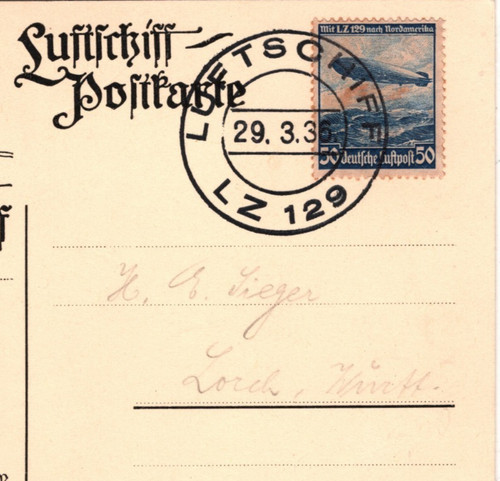 Luftschiff-
Postkarte
LUFTSCHIFF
29. 3. 36.
LZ 129
Mit LZ 129 nach Nordamerika
50 Deutsche Luftpost 50
H. E. Sieger
Lorch, Württ.